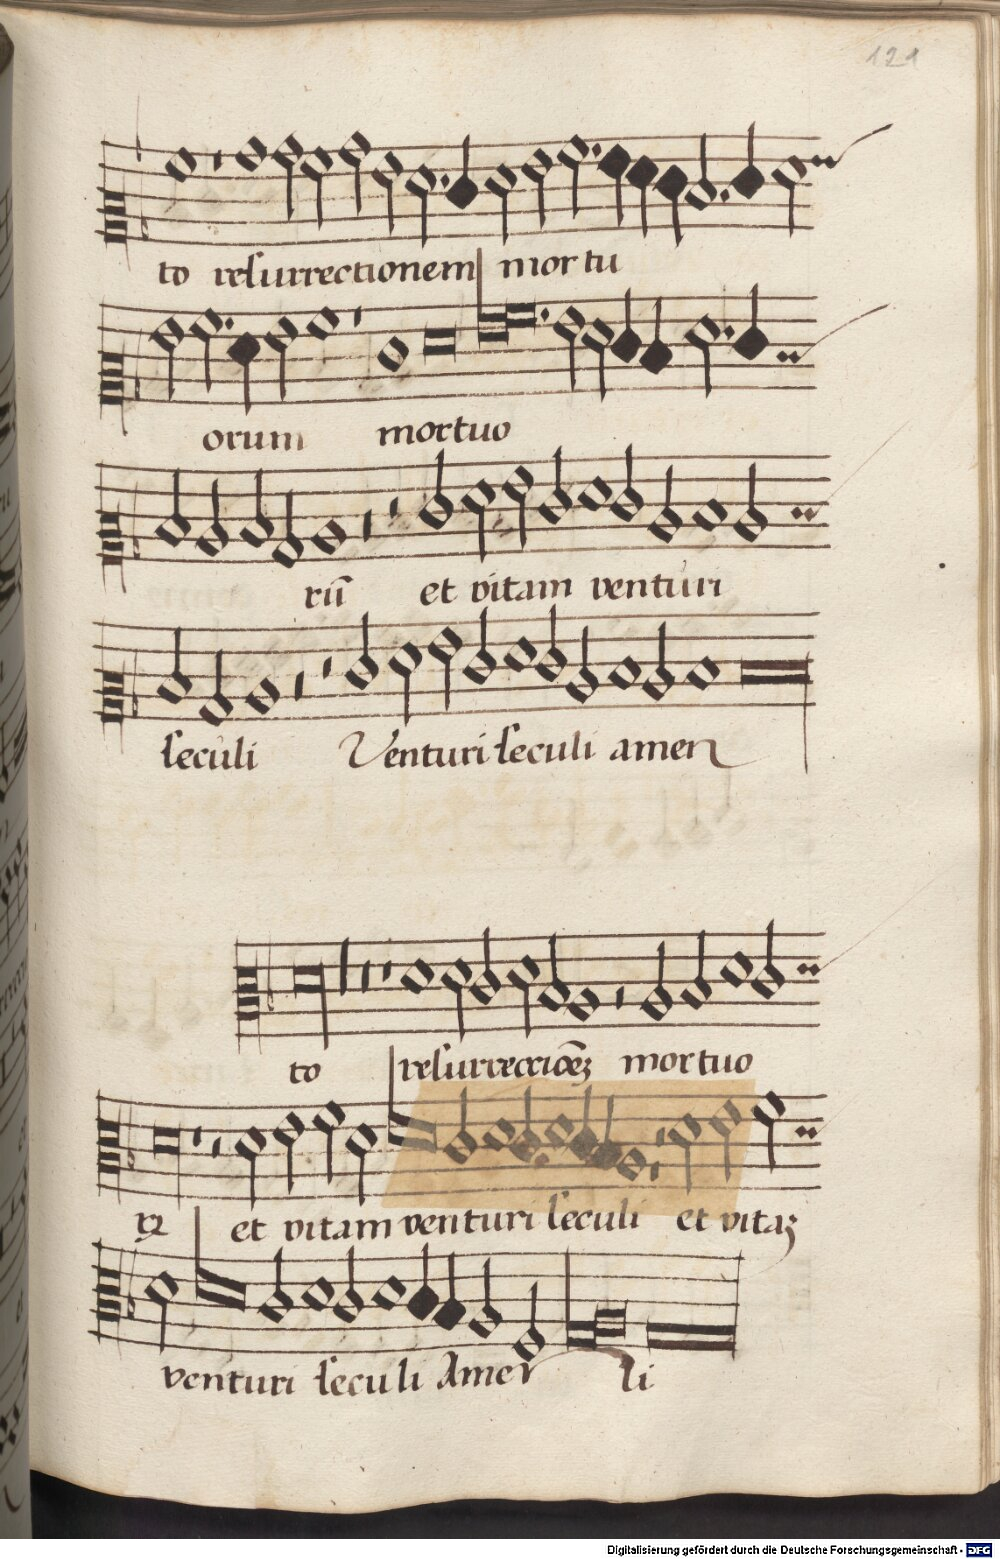 121
to resurrectionem mortu
orum mortuo
rū et vitam venturi
seculi Venturi seculi amen
to mortuo
et vitam venturi seculi et vitaȝ
venturi seculi Amen li
Digitalisierung gefördert durch die Deutsche Forschungsgemeinschaft - DFG